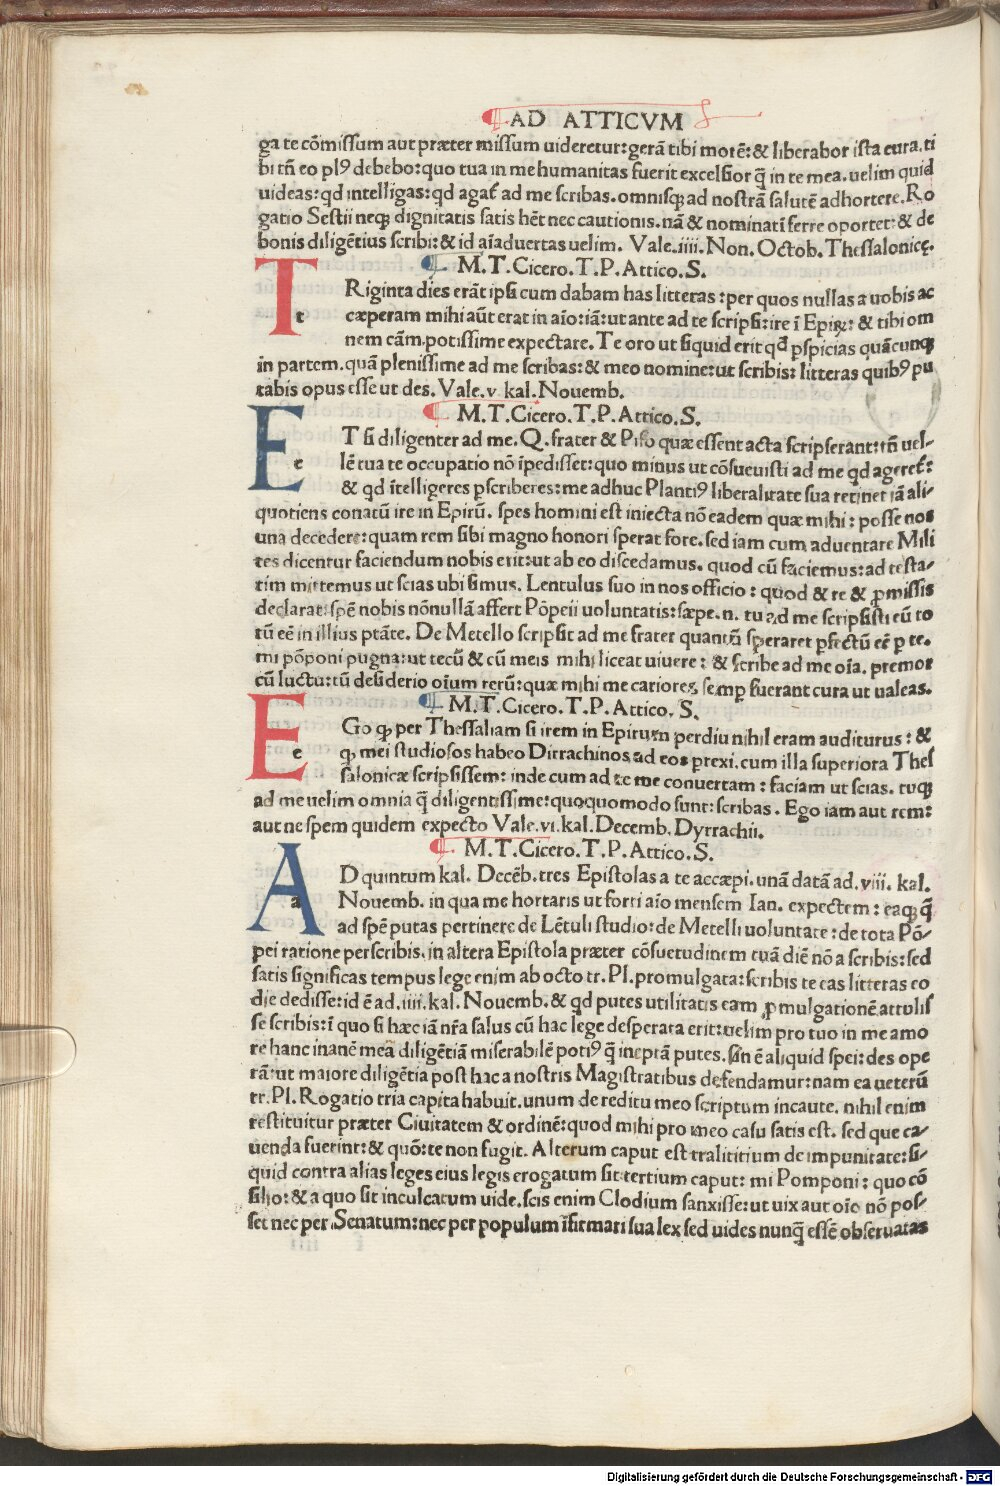 AD ATTICVM
ga te cōmissum aut præter missum uideretur: gerā tibi morē: & liberabor ista cura. ti
bi tñ eo plꝰ debebo: quo tua in me humanitas fuerit excelsior q̄ in te mea. uelim quid
uideas: qd intelligas: qd agat̄ ad me scribas. omnisqꝫ ad nostrā salutē adhortere. Ro
gatio Sestii neqꝫ dignitatis satis hēt nec cautionis. nā & nominati ferre oportet: & de
bonis diligētius scribi: & id aīaduertas uelim. Vale. iiii. Non. Octob. Thessalonicę.
M. T. Cicero. T. P. Attico. S.
T t Riginta dies erāt ipsi cum dabam has litteras: per quos nullas a uobis ac
cæperam mihi aūt erat in aīo: iā: ut ante ad te scripsi: ire ī Epiꝝ: & tibi om
nem cām. potissime expectare. Te oro ut siquid erit qd pspicias quācunqꝫ
in partem. quā plenissime ad me scribas: & meo nomine: ut scribis: litteras quibꝰ pu
tabis opus esse ut des. Vale. v. kal. Nouemb.
M. T. Cicero. T. P. Attico. S.
E e T si diligenter ad me. Q. frater & Piso quæ essent acta scripserant: tñ uel-
lē tua te occupatio nō īpedisset: quo minus ut cōsueuisti ad me qd ageret̄:
& qd ītelligeres pscriberes: me adhuc Plantiꝰ liberalitate sua retinet iā ali-
quotiens conatū ire in Epirū. spes homini est iniecta nō eadem quæ mihi: posse nos
una decedere: quam rem sibi magno honori sperat fore. sed iam cum aduentare Mili
tes dicentur faciendum nobis erit: ut ab eo discedamus. quod cū faciemus: ad te sta-
tim mittemus ut scias ubi simus. Lentulus suo in nos officio: quod & re & ꝓmissis
declarat: spē nobis nōnullā affert Pōpeii uoluntatis: sæpe. n. tu ad me scripsisti eū to
tū eē in illius ptāte. De Metello scripsit ad me frater quantū speraret pfectū eē p te.
mi pōponi pugna: ut tecū & cū meis mihi liceat uiuere: & scribe ad me oīa. premor
cū luctu: tū desiderio oīum rerū: quæ mihi me cariores semp fuerant cura ut ualeas.
M. T. Cicero. T. P. Attico. S.
E e Go qꝫ per Thessaliam si irem in Epirum perdiu nihil eram auditurus: &
qꝫ mei studiosos habeo Dirrachinos ad eos prexi. cum illa superiora Thes
salonicæ scripsissem: inde cum ad te me conuertam: faciam ut scias. tuqꝫ
ad me uelim omnia q̄ diligentissime: quoquomodo sunt: scribas. Ego iam aut rem:
aut ne spem quidem expecto Vale. vi. kal. Decemb. Dyrrachii.
M. T. Cicero. T. P. Attico. S.
A a D quintum kal. Decēb. tres Epistolas a te accæpi. unā datā ad. viii. kal.
Nouemb. in qua me hortaris ut forti aīo mensem Ian. expectem: eaqꝫ q̄
ad spē putas pertinere de Lētuli studio: de Metelli uoluntate: de tota Pō-
pei ratione perscribis. in altera Epistola præter cōsuetudinem tuā diē nō a scribis: sed
satis significas tempus lege enim ab octo tr. Pl. promulgata: scribis te eas litteras eo
die dedisse: id ē ad. iiii. kal. Nouemb. & qd putes utilitatis eam ꝓmulgationē attulis
se scribis: ī quo si hæc iā nr̄a salus cū hac lege desperata erit: uelim pro tuo in me amo
re hanc inanē meā diligētiā miserabilē potiꝰ q̄ ineptā putes. sin ē aliquid spei: des ope
rā: ut maiore diligētia post hac a nostris Magistratibus defendamur: nam ea ueterū
tr. Pl. Rogatio tria capita habuit. unum de reditu meo scriptum incaute. nihil enim
restituitur præter Ciuitatem & ordinē: quod mihi pro meo casu satis est. sed que ca-
uenda fuerint: & quō: te non fugit. Alterum caput est tralititium de impunitate: si-
quid contra alias leges eius legis erogatum sit: tertium caput: mi Pomponi: quo cō
silio: & a quo sit inculcatum uide. scis enim Clodium sanxisse: ut uix aut oīo nō pos-
set nec per Senatum: nec per populum īfirmari sua lex sed uides nunq̄ essē obseruatas
Digitalisierung gefördert durch die Deutsche Forschungsgemeinschaft - DFG